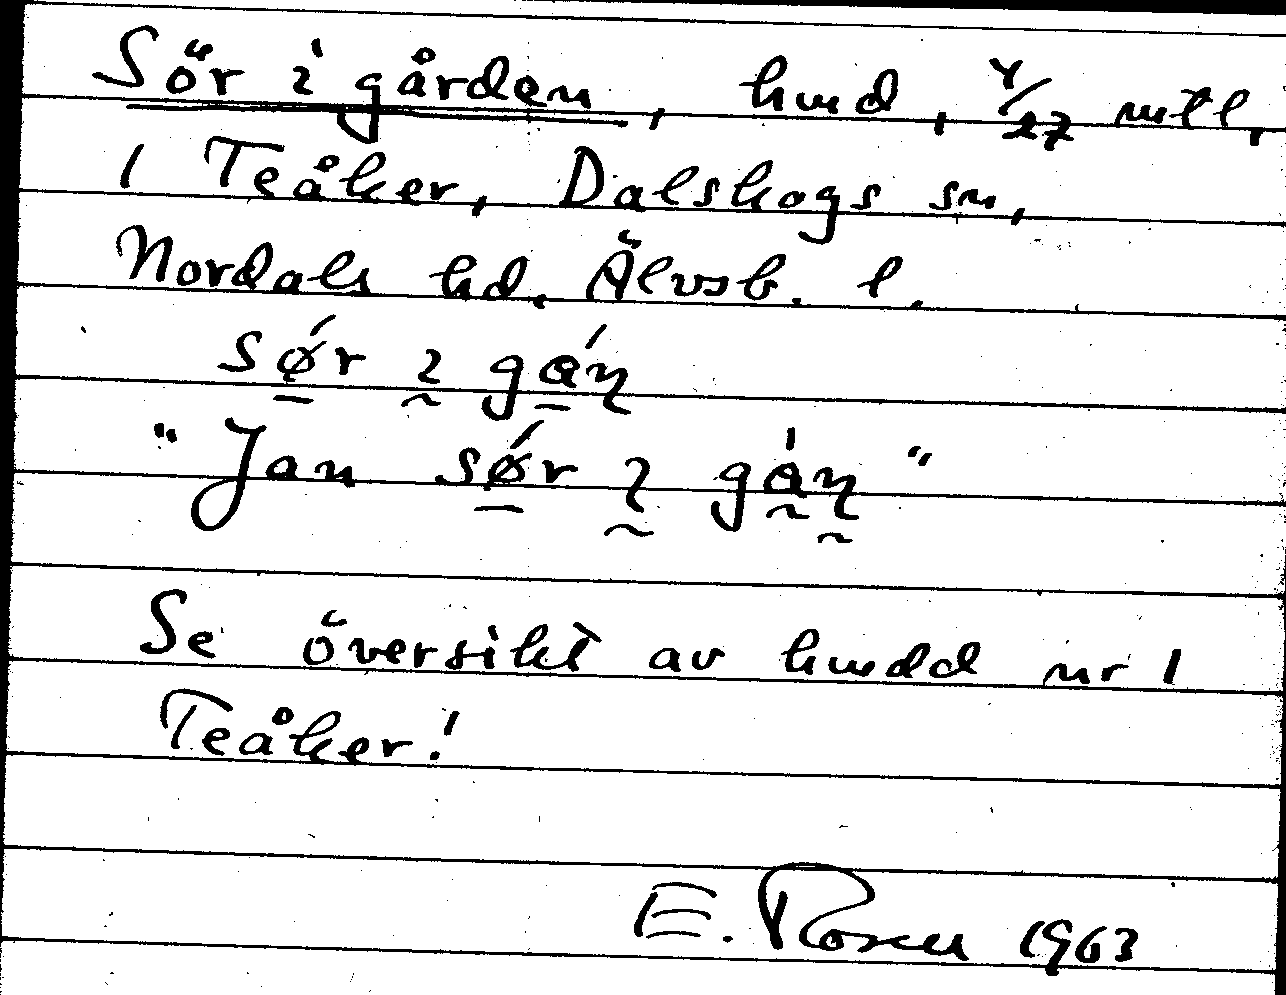 Sör i gården, hmd, 4/27 mtl,
1 Teåker, Dalskogs sn,
Nordals hd. Älvsb. l.
sǿr ı gáɳ
"Jan sǿr ı gàɳ"
Se översikt av hmdd nr 1
Teåker!
E. Rosen 1963